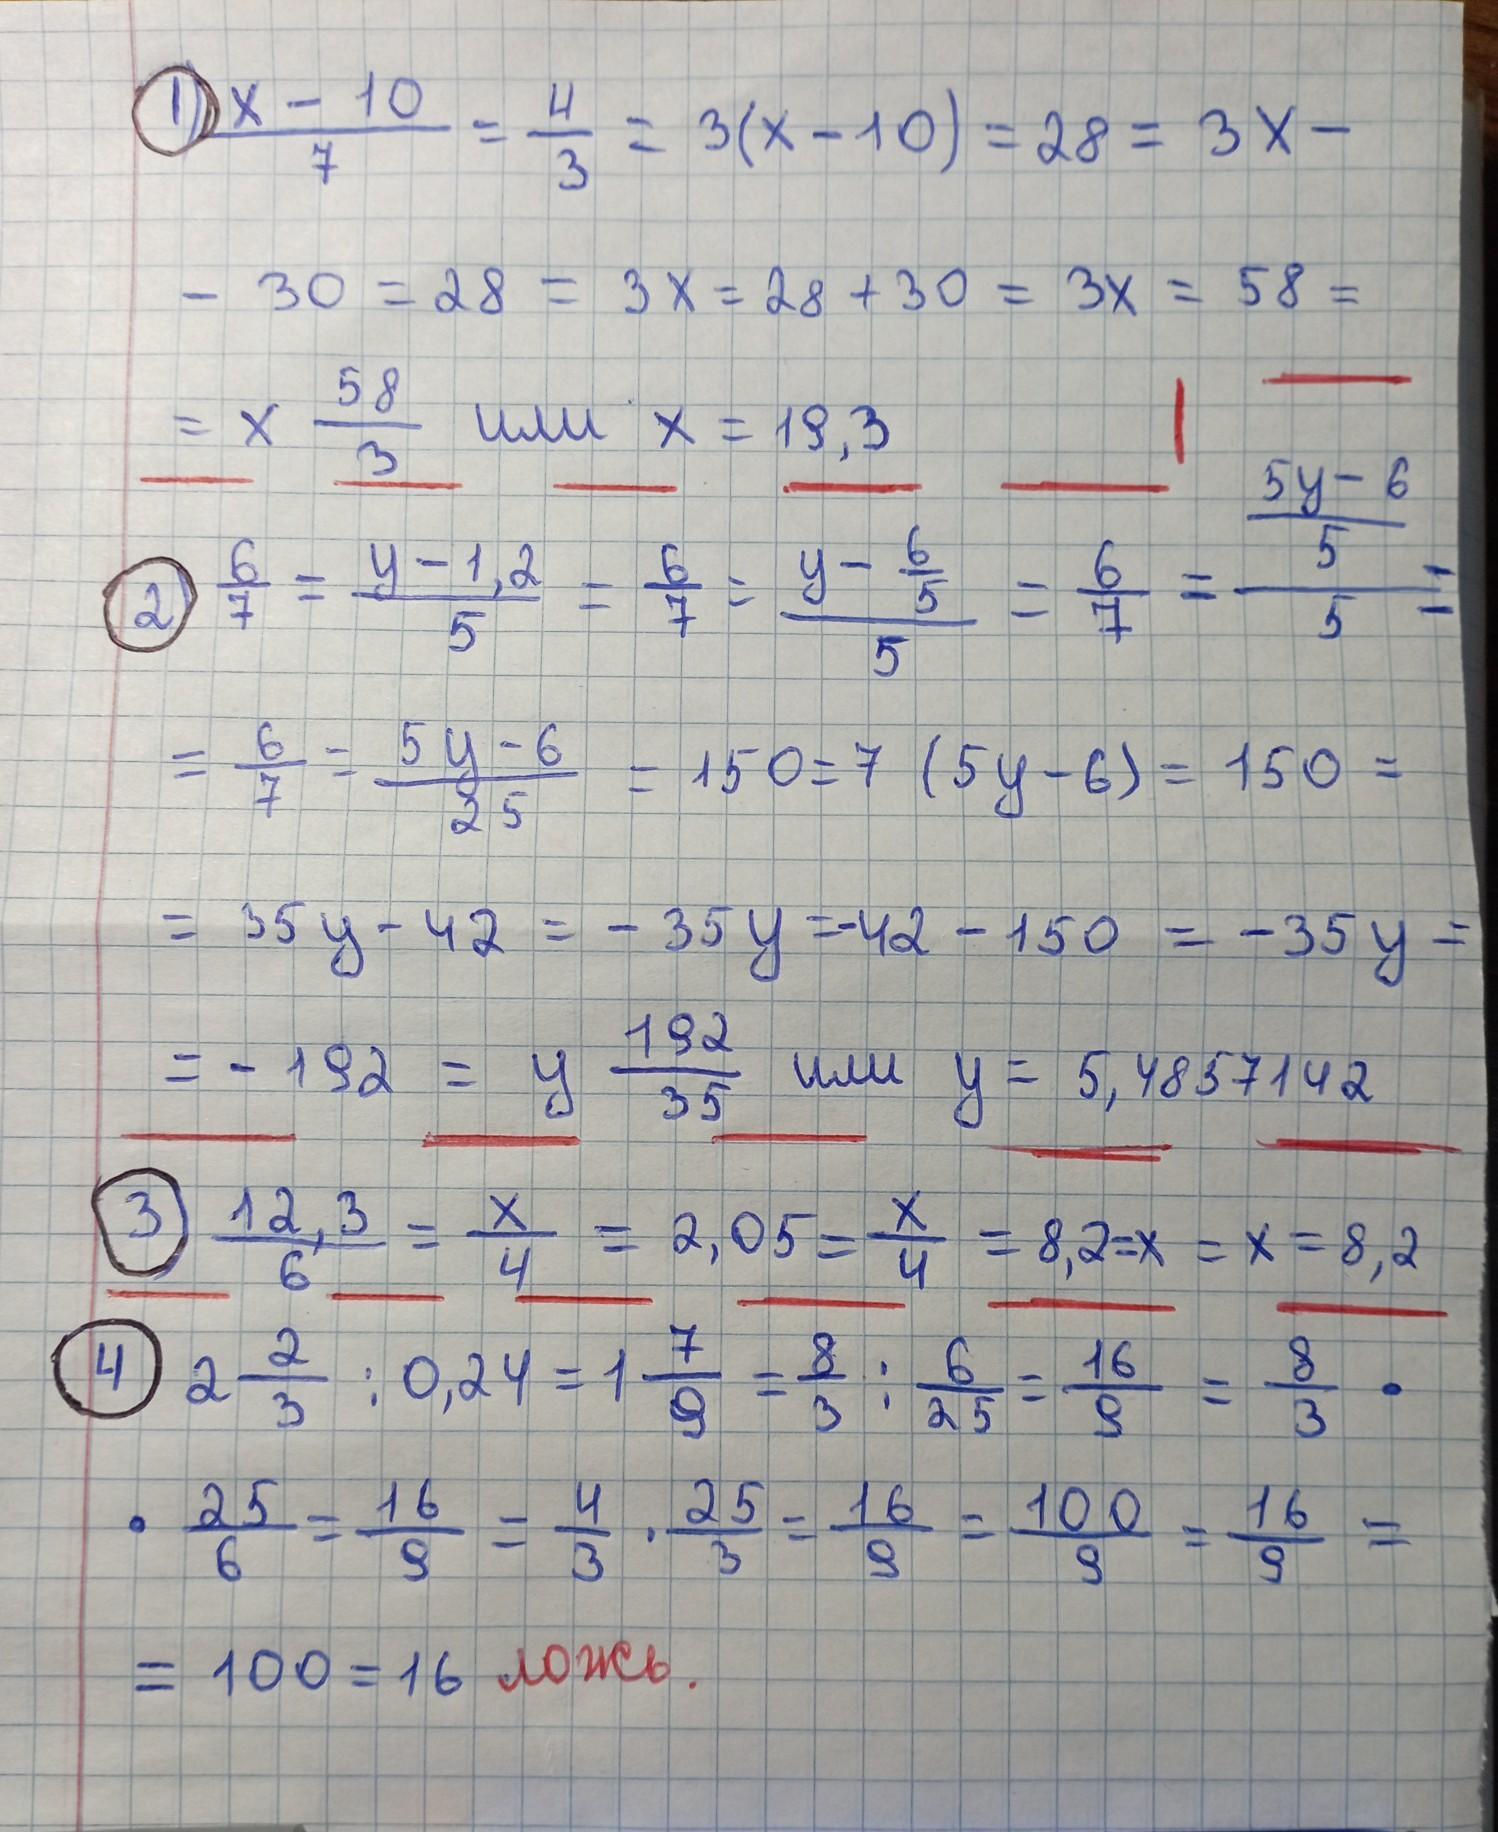 1) x - 10 / 7 = 4/3 = 3(x - 10) = 28 = 3x -
- 30 = 28 = 3x = 28 + 30 = 3x = 58 =
= x 58/3 или x = 19,3
2) 6/7 = y - 1,2 / 5 = 6/7 = y - 6/5 / 5 = 6/7 = 5y - 6 / 5 / 5 =
= 6/7 = 5y - 6 / 25 = 150 = 7 (5y - 6) = 150 =
= 35y - 42 = - 35y = -42 - 150 = - 35y =
= - 192 = y 192/35 или y = 5,4857142
3 12,3/6 = x/4 = 2,05 = x/4 = 8,2 = x = x = 8,2
4 2 2/3 : 0,24 = 1 7/9 = 8/3 : 6/25 = 16/9 = 8/3 •
• 25/6 = 16/9 = 4/3 · 25/3 = 16/9 = 100/9 = 16/9 =
= 100 = 16 ложь.